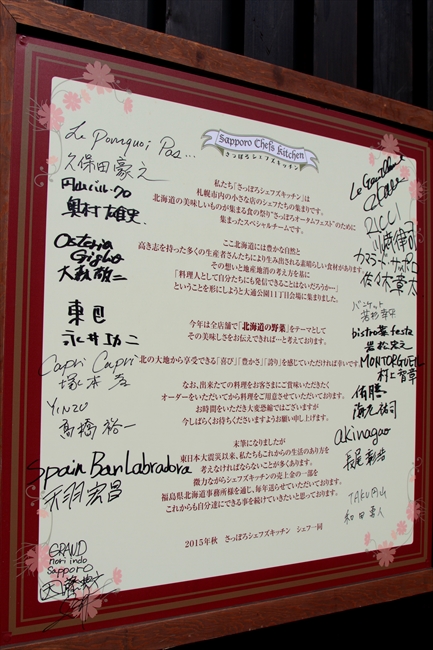 Sapporo Chefs Kitchen
さっぽろシェフズキッチン
私たち「さっぽろシェフズキッチン」は
札幌市内の小さな店のシェフたちの集まりです。
北海道の美味しいものが集まる食の祭り“さっぽろオータムフェスト”のために
集まったスペシャルチームです。
ここ北海道には豊かな自然と
高き志を持った多くの生産者さんたちにより生み出される素晴らしい食材があります。
その想いと地産地消の考え方を基に
「料理人として自分たちにも発信できることはないだろうか―」
ということを形にしようと大通公園11丁目会場に集まりました。
今年は全店舗で「北海道の野菜」をテーマとして
その美味しさをお伝えできれば…と考えております。
北の大地から享受できる「喜び」「豊かさ」「誇り」を感じていただければ幸いです。
なお、出来たての料理をお客さまにご賞味いただきたく
オーダーをいただいてから料理をご用意させていただいております。
お時間をいただき大変恐縮ではございますが
今しばらくお待ちくださいますようお願い申し上げます。
末筆になりましたが
東日本大震災以来、私たちもこれからの生活のあり方を
考えなければならないことが多くあります。
微力ながらシェフズキッチンの売上金の一部を
福島県北海道事務所様を通じ、毎年送らせていただいております。
これからも自分達にできる事を続けていきたいと思っております。
2015年秋　さっぽろシェフズキッチン　シェフ一同
Le Pourquoi Pas...
久保田豪之
円山バル・フロ
奥村雄史
Osteria
Giglio
大萩敬二
東邑
永井功二
Capri Capri
塚本孝
YINZU
高橋裕一
Spain Bar Labradora
天羽宏昌
GRAND
nori indo
Sapporo
RICCI
川崎律司
カマラード・サッポロ
佐々木章太
バンケット
若杉幸平
bistro 菜 festa
岩松定之
MONTORGUEIL
村上智章
侑膳
海老裕司
akinagao
長尾彰浩
TAKU円山
和田喜人